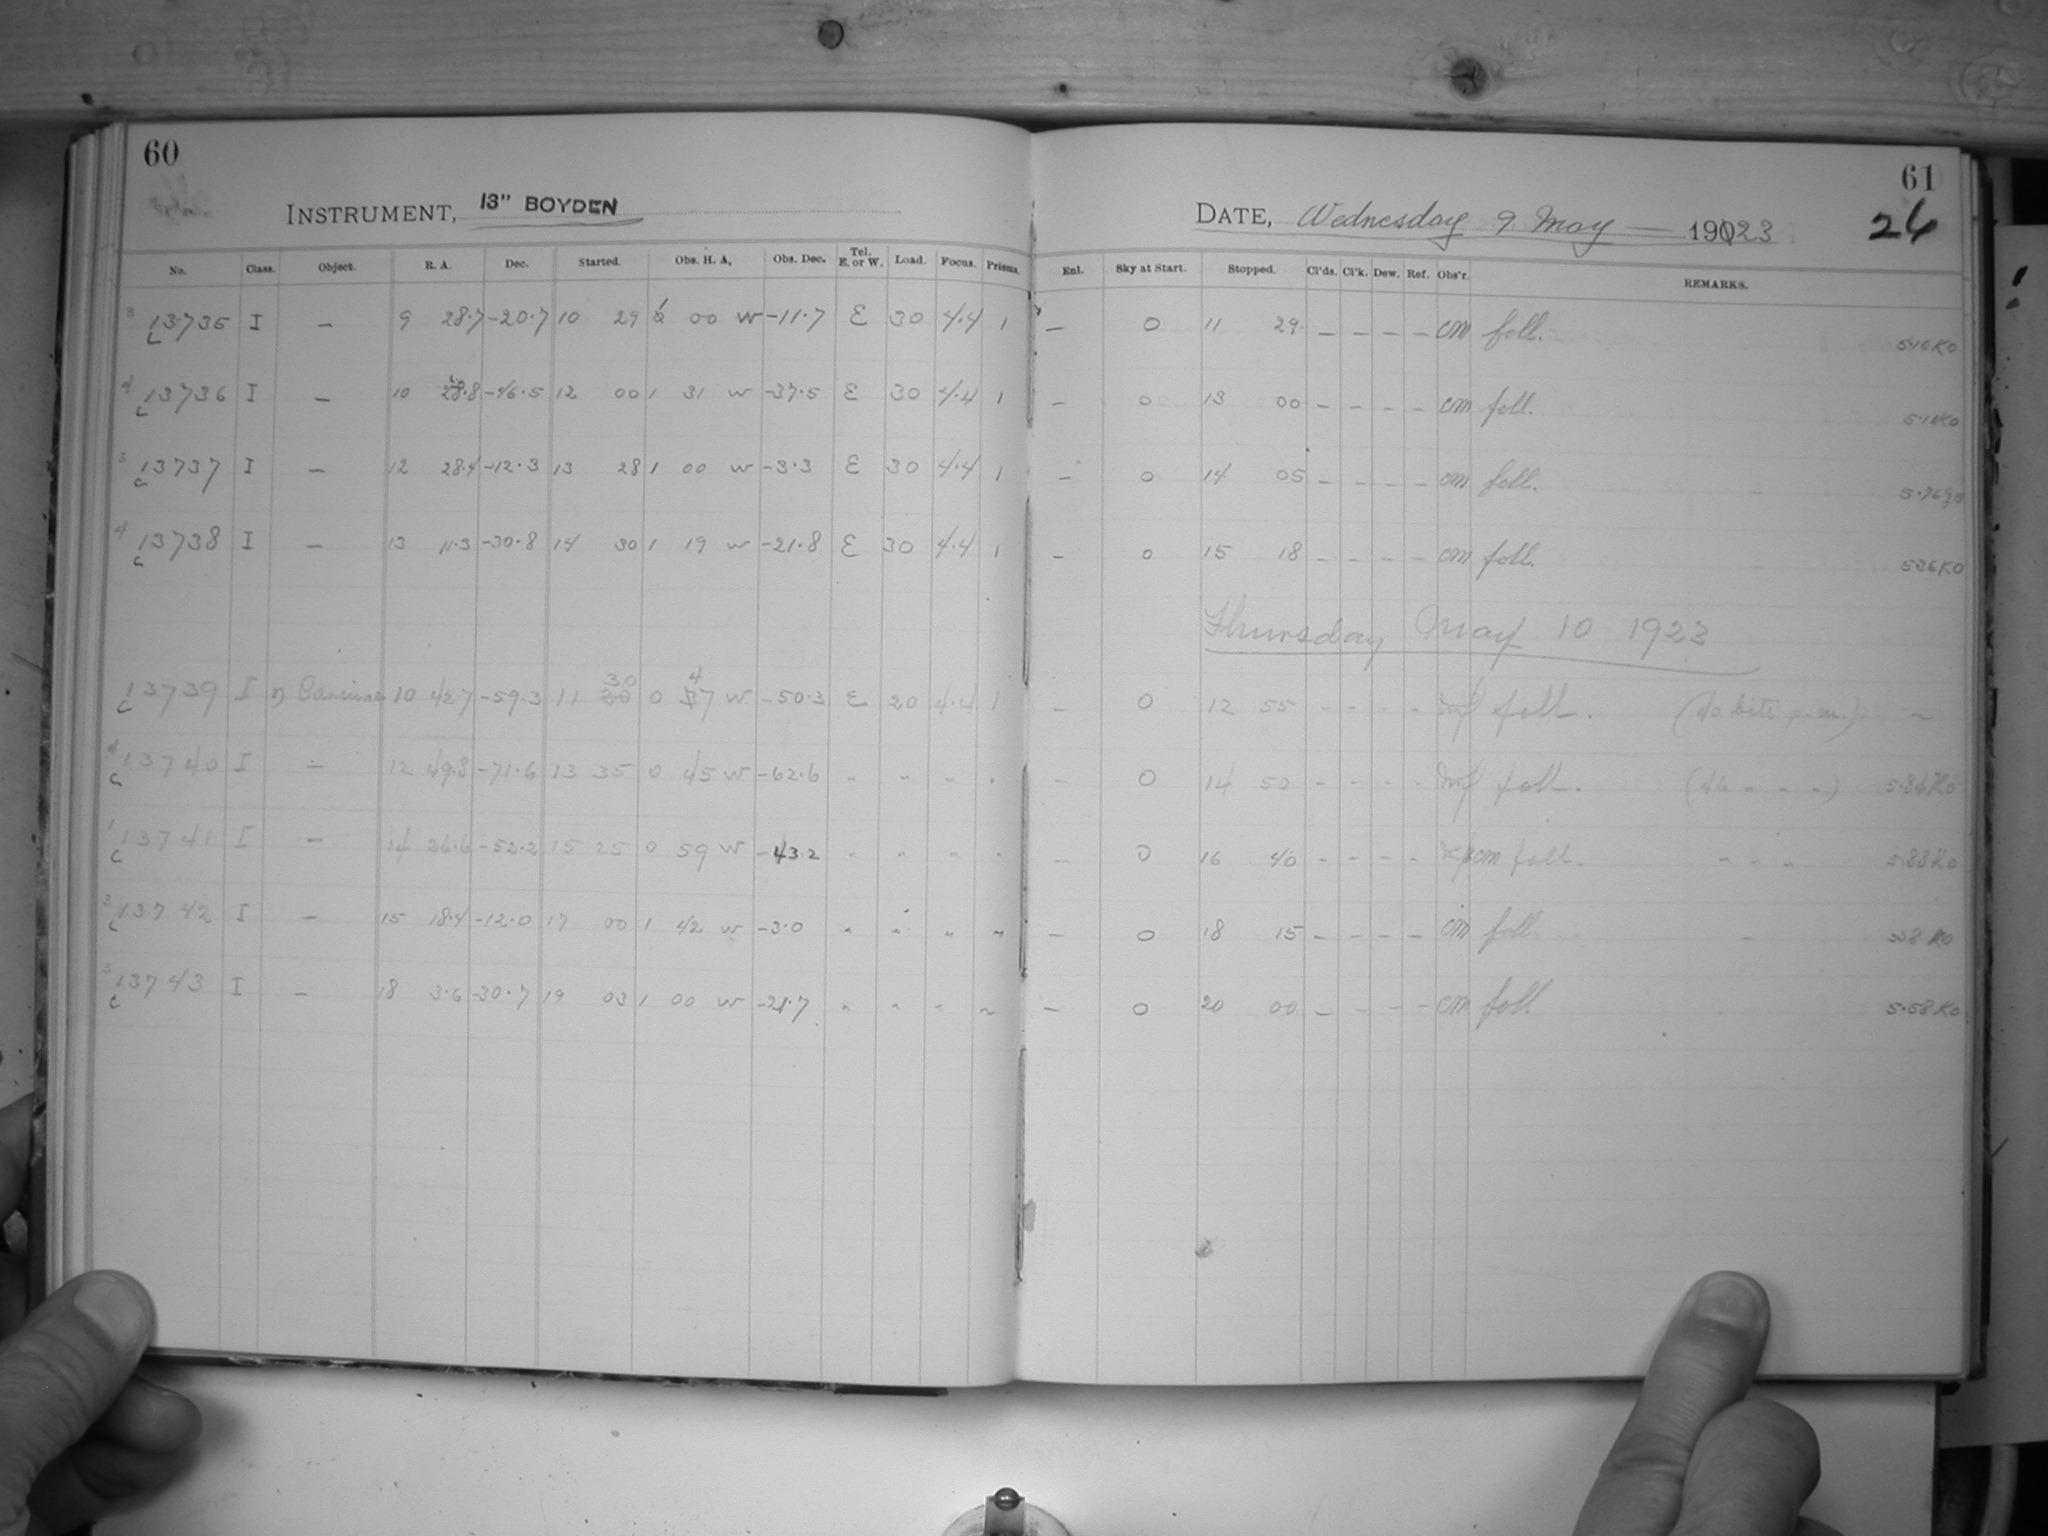 60
INSTRUMENT, 13" BOYDEN
No. Class. Object. R. A. Dec. Started. Obs. H. A, Obs. Dec. Tel. E. or W. Load. Focus. Prisms.
3 13735 I — 9 28.7 -20.7 10 29 1 00 W -11.7 E 30 4.4 1
4 13736 I — 10 28.8 -46.5 12 00 1 31 W -37.5 E 30 4.4 1
3 13737 I — 12 28.4 -12.3 13 28 1 00 W -3.3 E 30 4.4 1
4 13738 I — 13 11.3 -30.8 14 30 1 19 W -21.8 E 30 4.4 1
13739 I η Carinae 10 42.7 -59.3 11 30 0 47 W -50.3 E 20 4.4 1
4 13740 I — 12 49.8 -71.6 13 35 0 45 W -62.6 " " " "
1 13741 I — 14 26.6 -52.2 15 25 0 59 W -43.2 " " " "
3 13742 I — 15 18.4 -12.0 17 00 1 42 W -3.0 " " " "
3 13743 I — 18 3.6 -30.7 19 03 1 00 W -21.7 " " " "
61
DATE, Wednesday 9 May — 1923
26
Enl. Sky at Start. Stopped. Cl'ds. Cl'k. Dew. Ref. Obs'r. REMARKS.
— 0 11 29 — — — — cm foll. 5.16 K0
— 0 13 00 — — — — cm foll. K0
— 0 14 05 — — — — cm foll.
— 0 15 18 — — — — cm foll. 526 K0
Thursday May 10 1923
— 0 12 55 - - - - foll. —
— 0 14 50 - - - - foll. (46 " " ") 5.84 K0
— 0 16 40 - - - - cm foll. " " " 5.88 K0
— 0 18 15 — — — — cm foll. K0
— 0 20 00 — — — — cm foll 5.58 K0